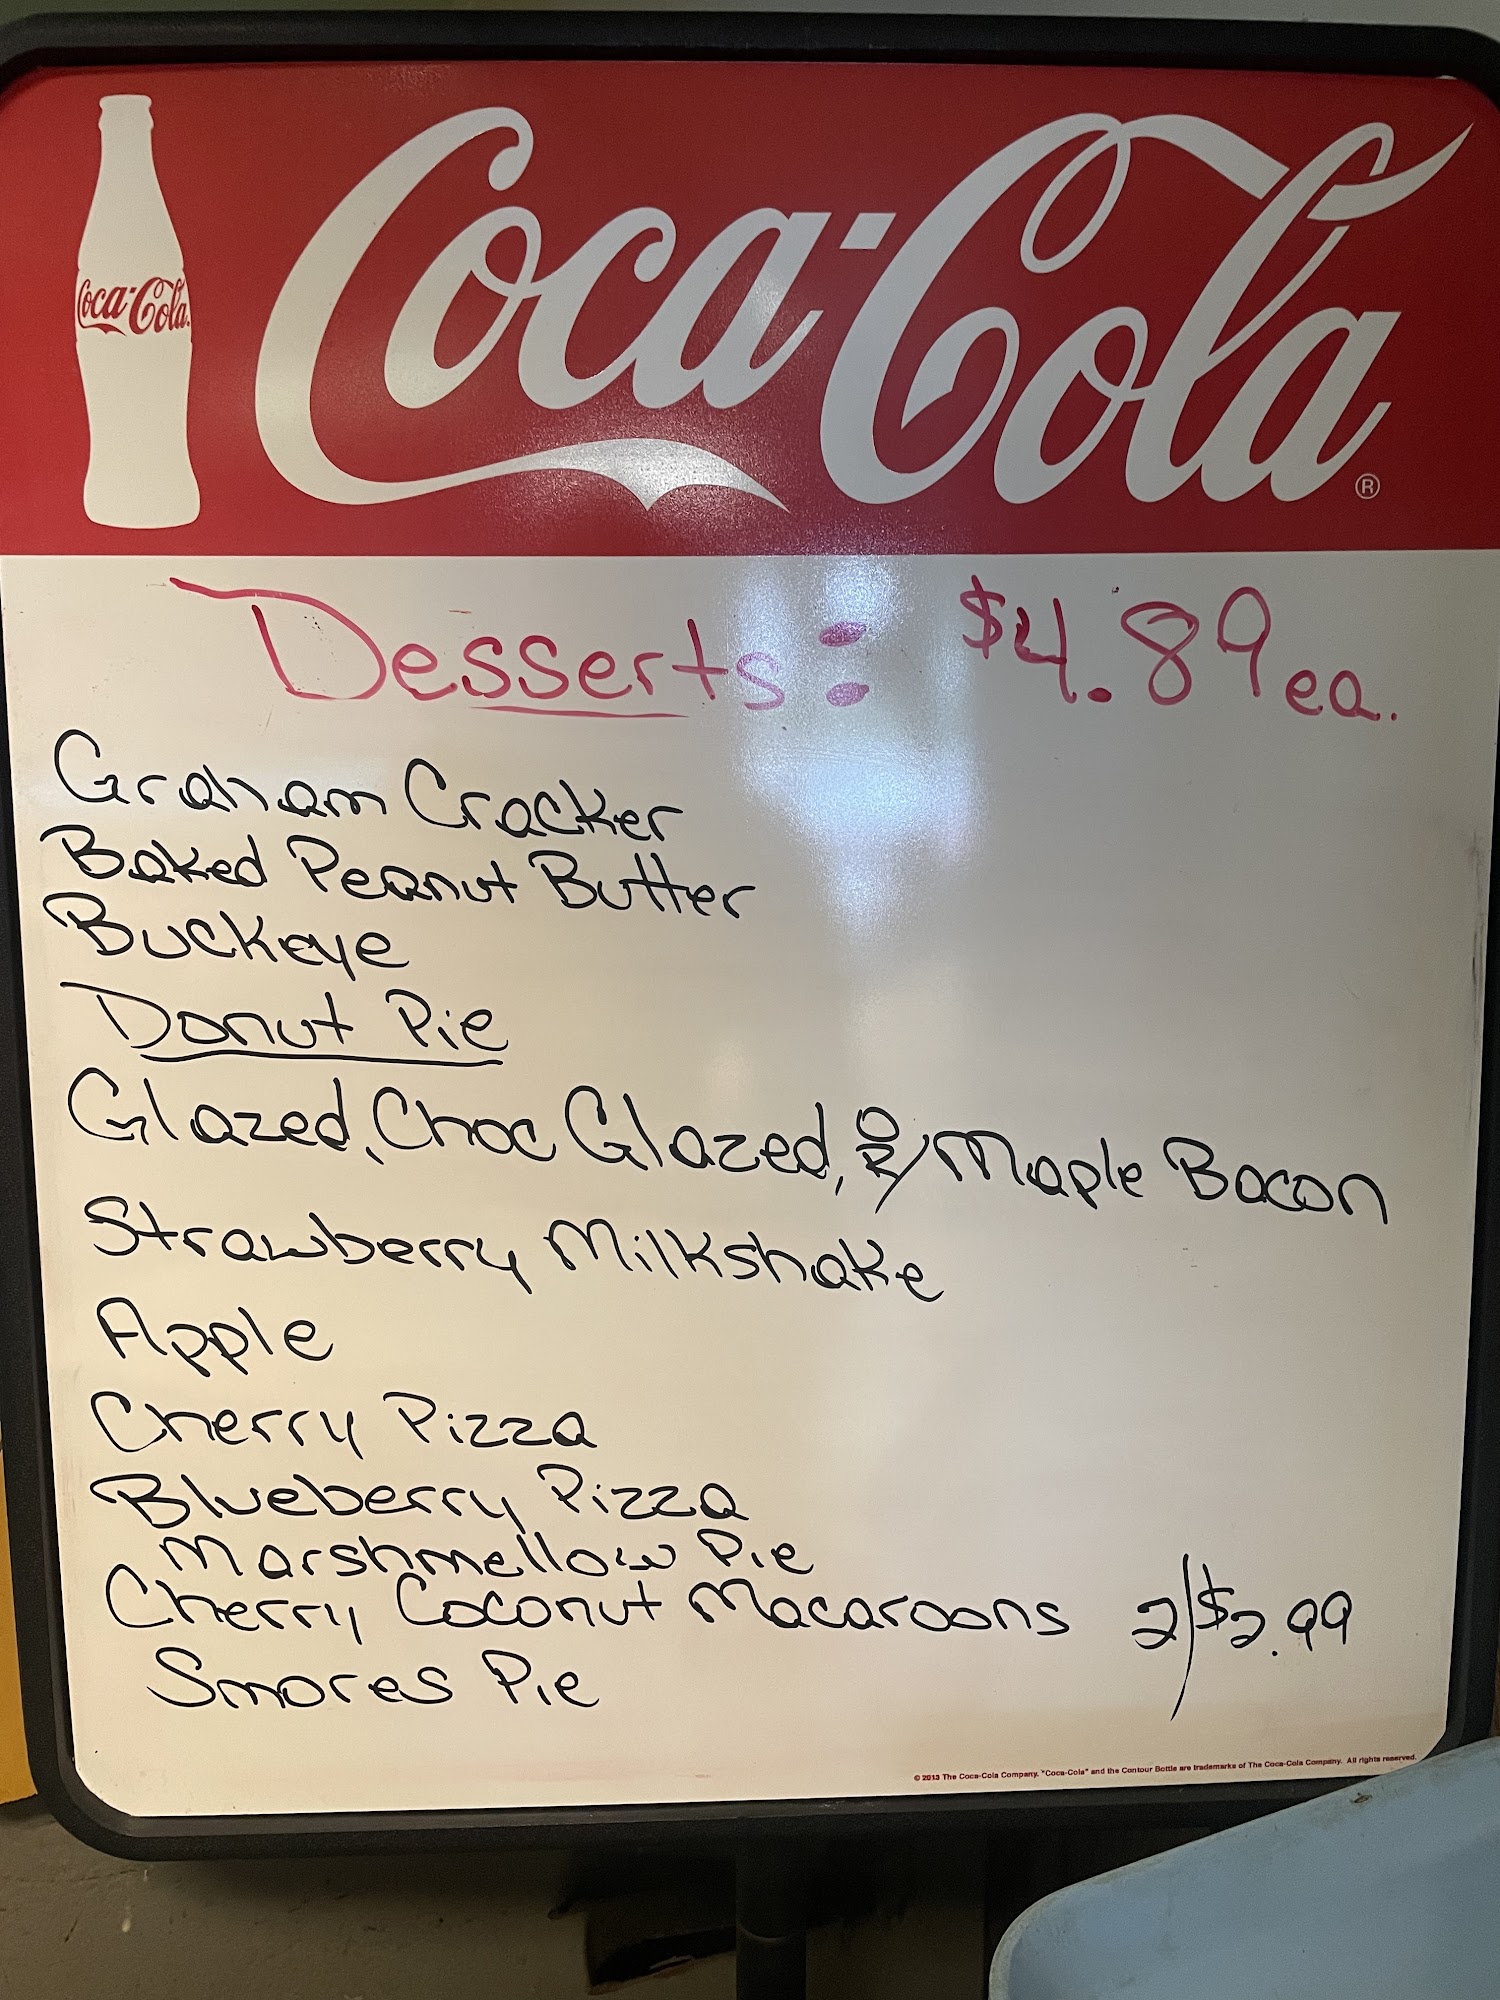 Coca-Cola
Coca-Cola®
Desserts: $4.89 ea.
Graham Cracker
Baked Peanut Butter
Buckeye
Donut Pie
Glazed, Choc Glazed, OR/Maple Bacon
Strawberry Milkshake
Apple
Cherry Pizza
Blueberry Pizza
Marshmellow Pie
Cherry Coconut Macaroons 2/$2.99
Smores Pie
© 2013 The Coca-Cola Company. "Coca-Cola" and the Contour Bottle are trademarks of The Coca-Cola Company. All rights reserved.